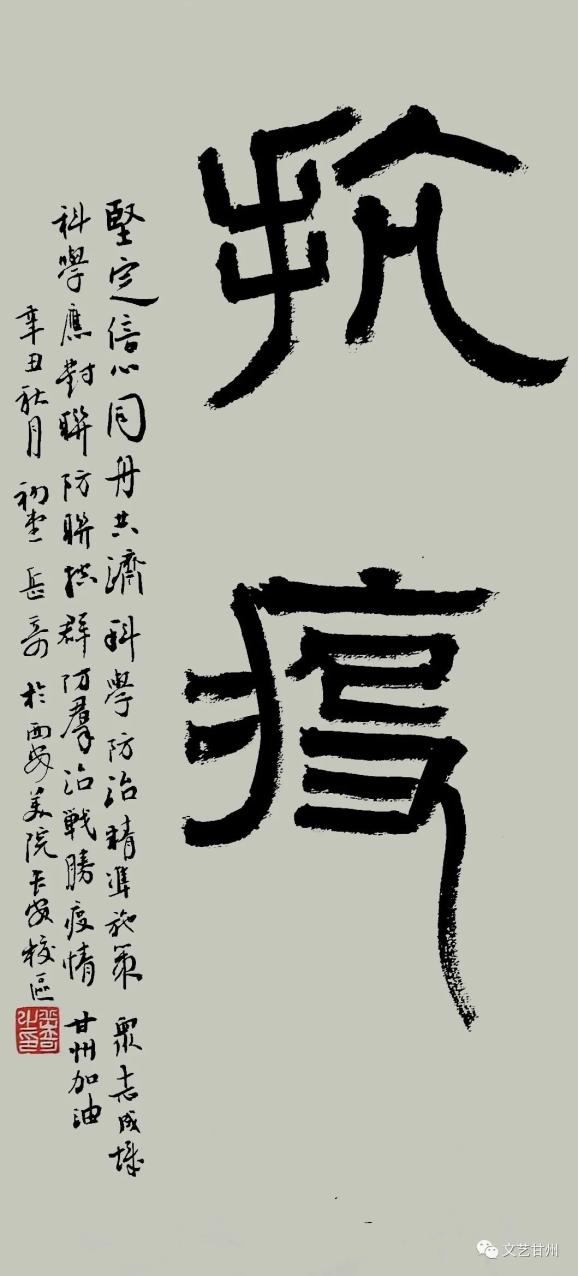 抗疫
堅定信心同舟共濟科學防治精準施策 眾志成城
科學應對聯防聯控群防羣治戰勝疫情 甘州加油
辛丑秋月 初堂 岳奇 於西安美院長安校區
文艺甘州